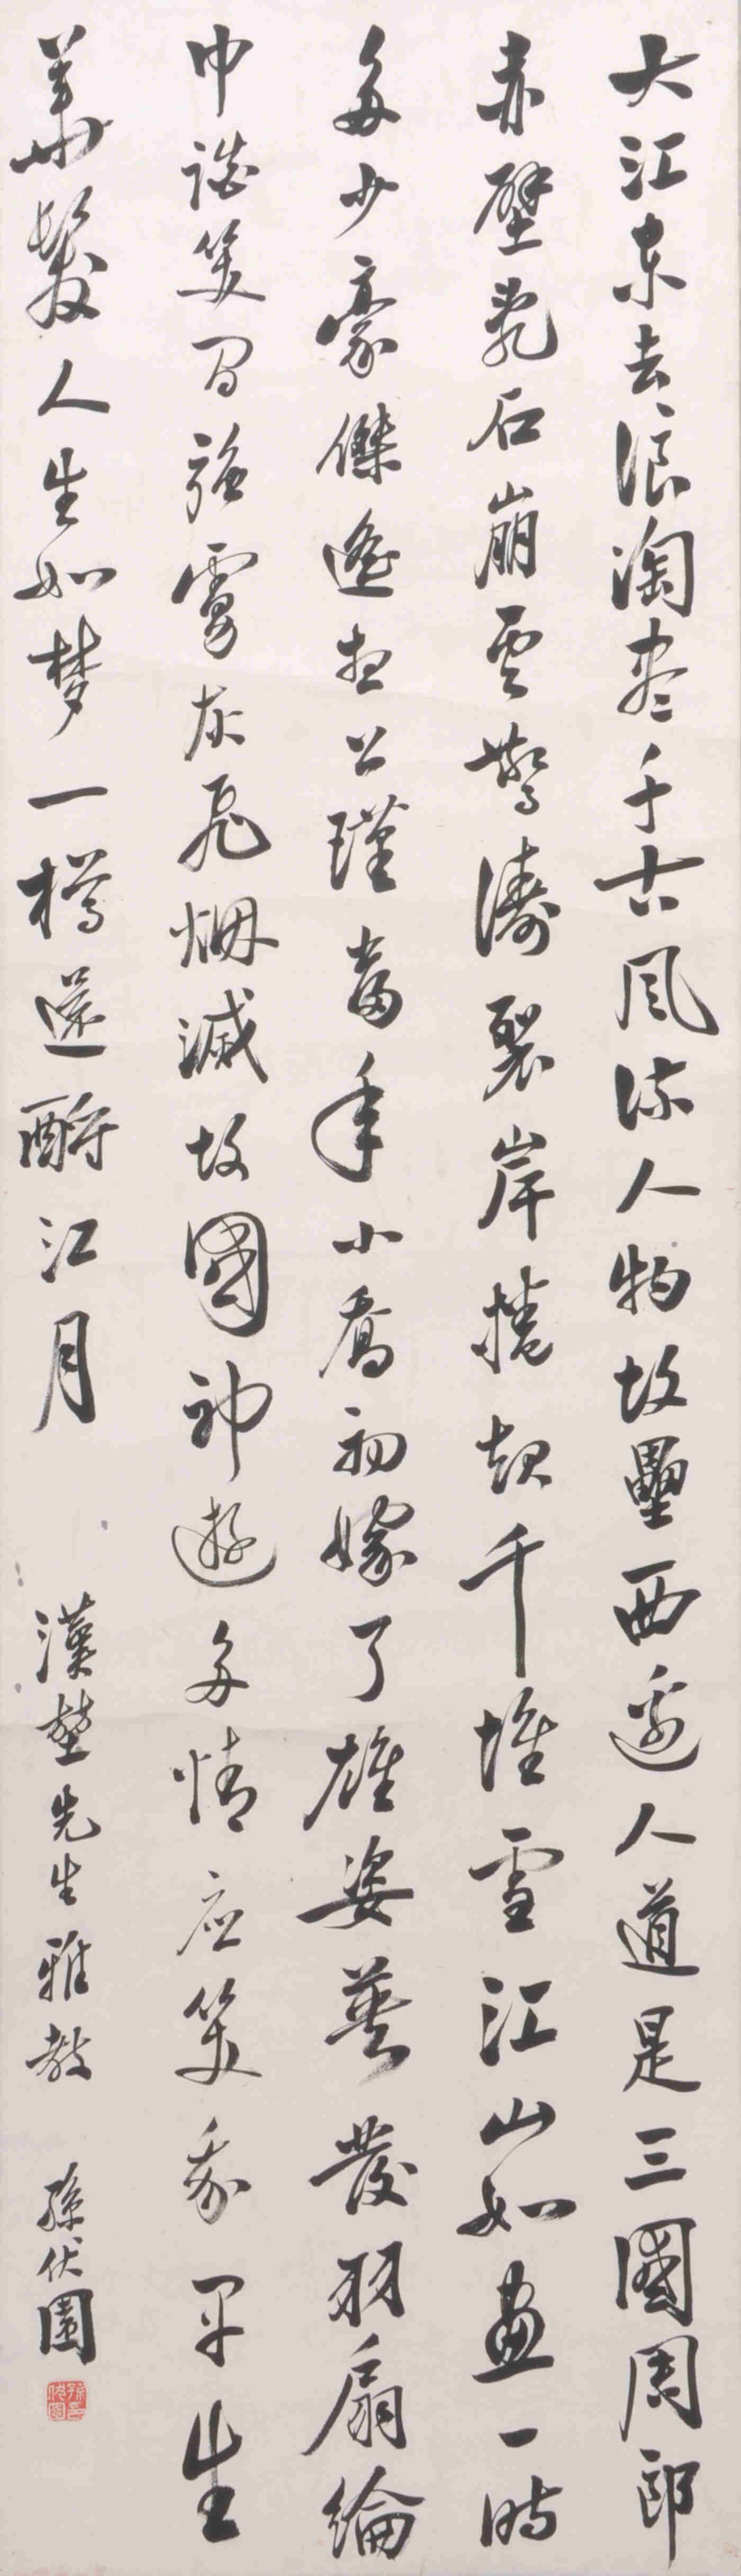 大江東去浪淘盡千古風流人物故壘西邊人道是三國周郎
赤壁亂石崩雲驚濤裂岸捲起千堆雪江山如畫一時
多少豪傑遙想公瑾當年小喬初嫁了雄姿英發羽扇綸
巾談笑間強虜灰飛烟滅故國神遊多情應笑我平生
華髮人生如梦一樽還酹江月
漢楚先生雅教
孫伏園
孫伏園印